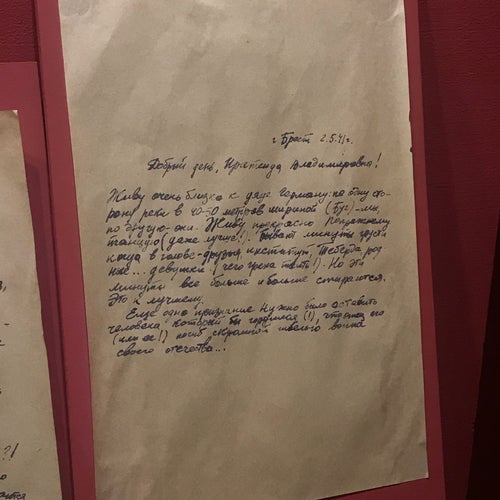 г Брест 2.5.41г.
Добрый день, Владимировна!
Живу очень близко к дяде Герману: по одну сто-
рону реки в 40-50 метров шириной (Буг)-мы
по другую-они. Живу прекрасно по-прежнему
танцую (даже лучше!). Бывают минуты грусти
когда в голове-друзья, институт,
девушки (чего греха таить!). Но эти
минутки все больше и больше стираются.
Это к лучшему.
Еще одно признание Нужно было оставить
человека, который бы гордился (!), что его
(или ее!) погиб скромной воина
своего отечества...
?!